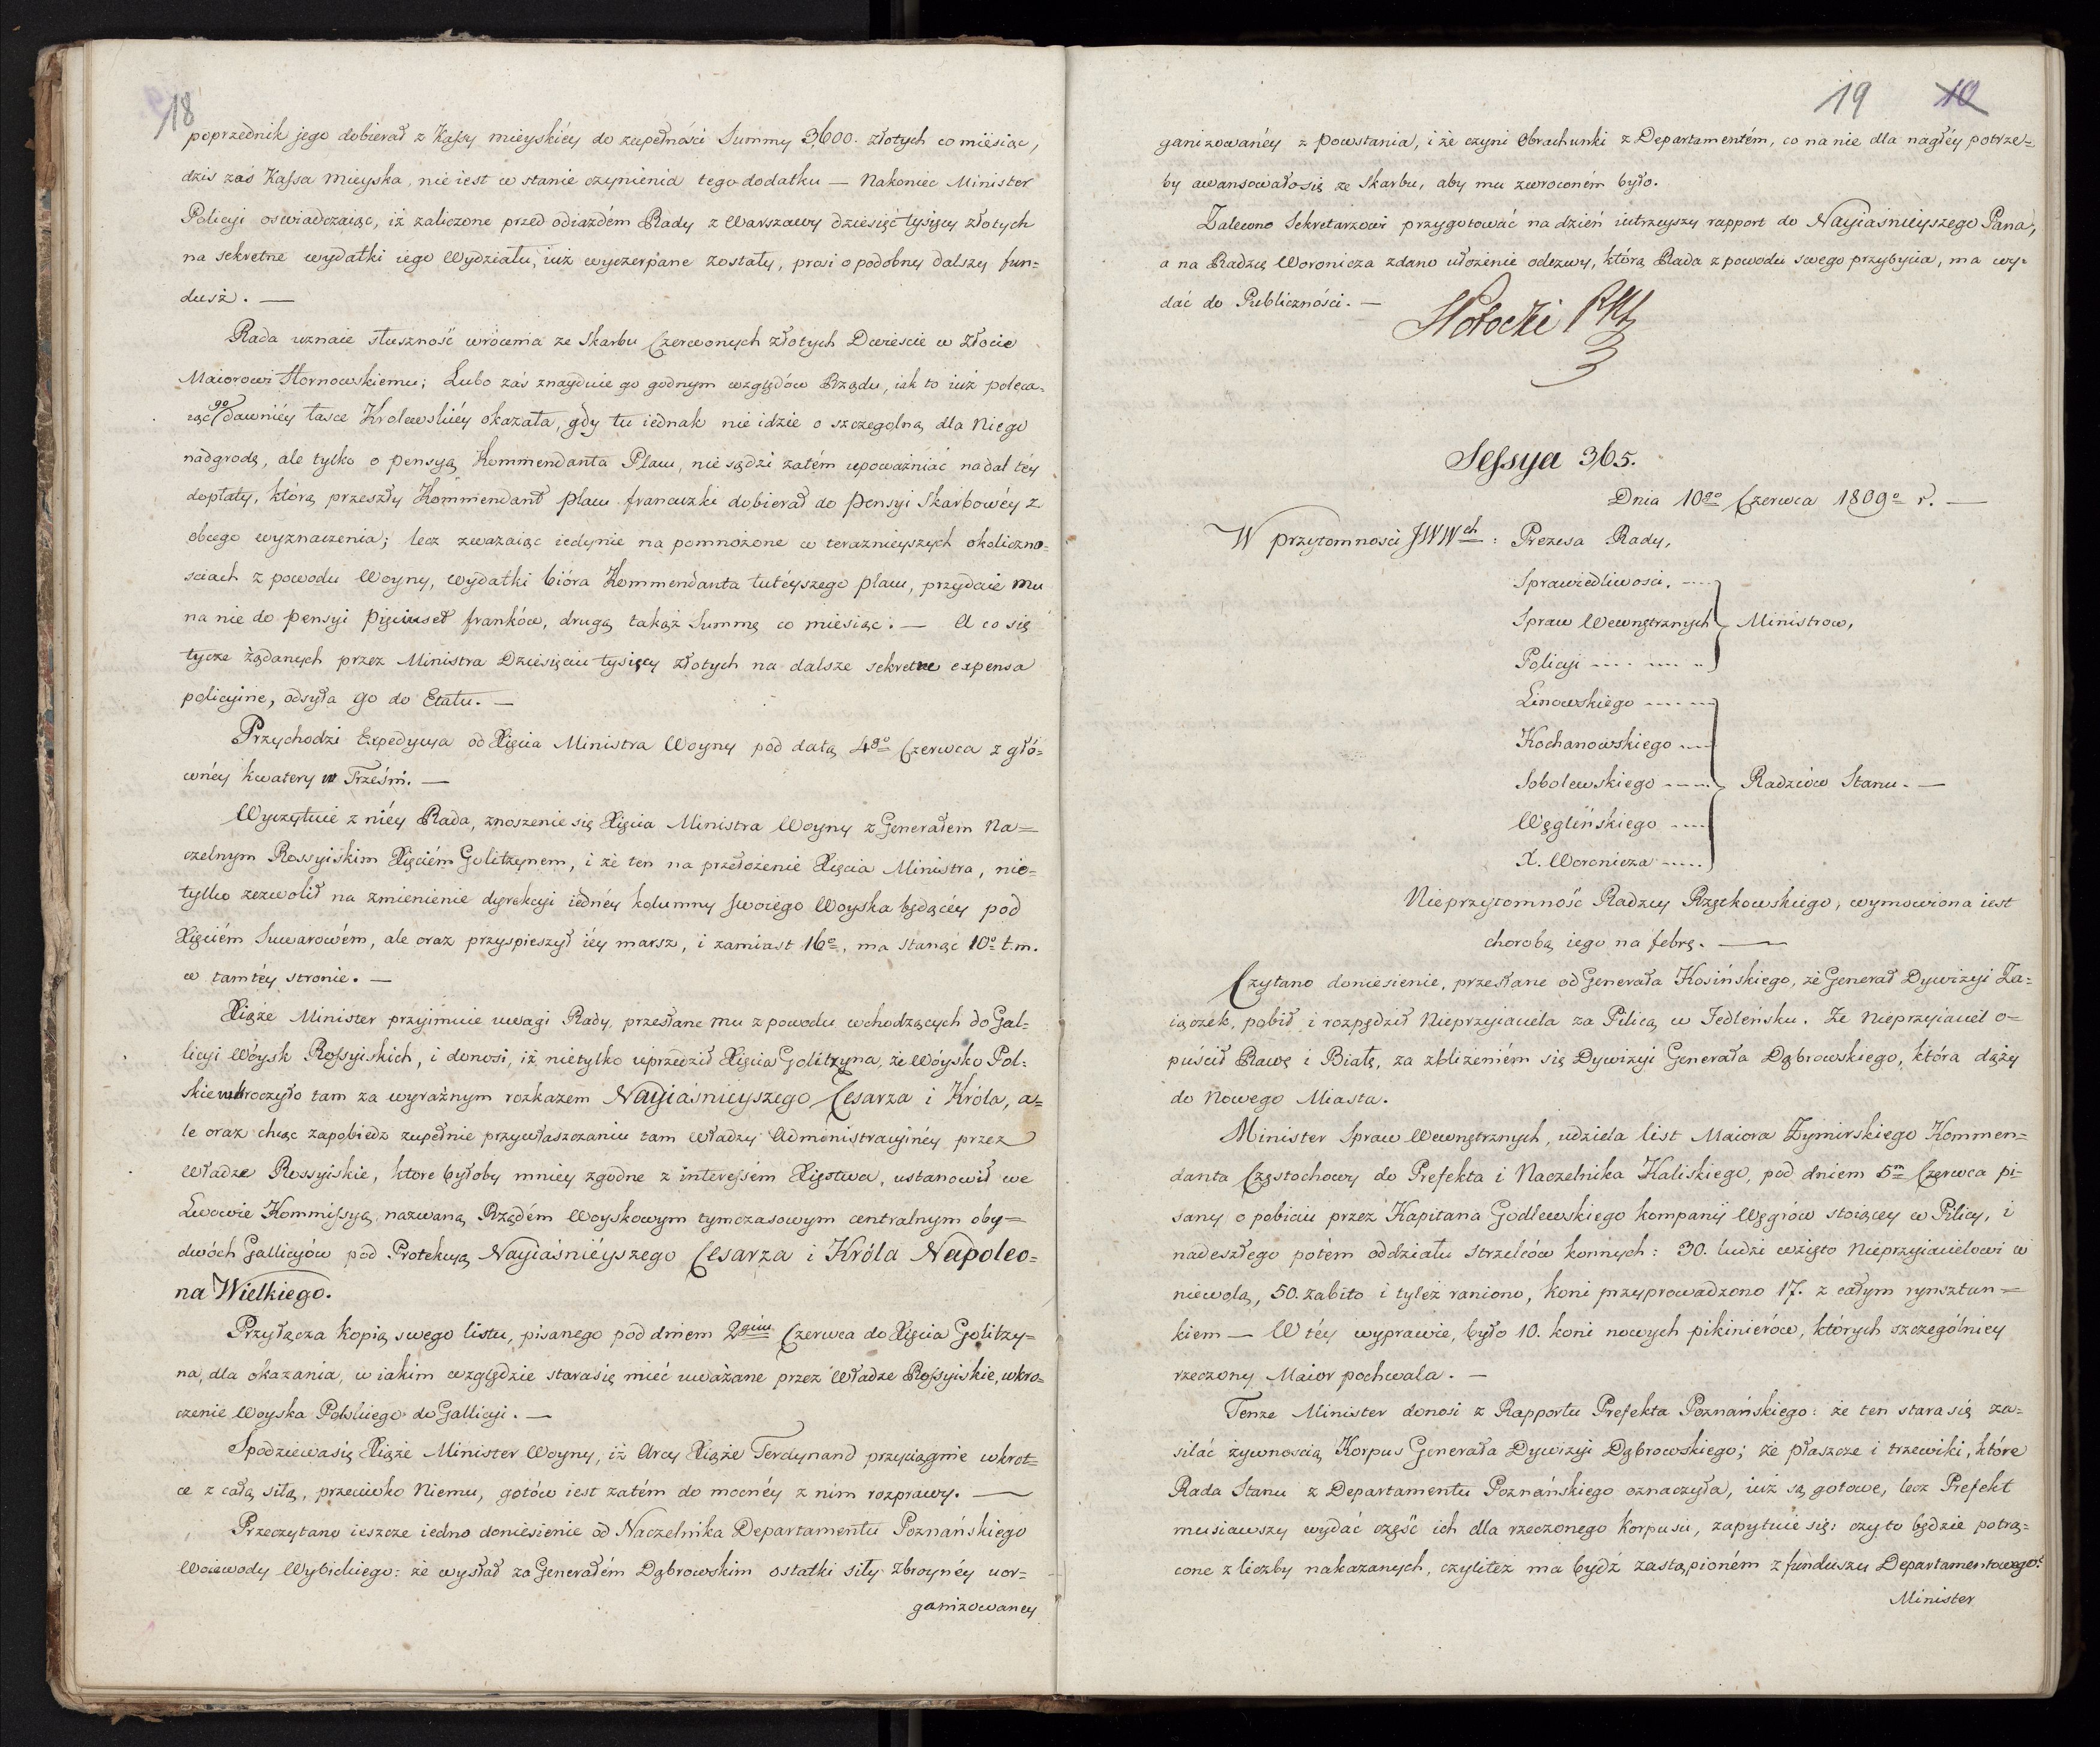 18
poprzednik jego dobierał z Kassy mieyskiéy do zupełności Summy 3,600. złotych co miesiąc,
dziś zaś Kassa mieyska, nie iest w stanie czynienia tego dodatku — Nakoniec Minister
Policyi oswiadczaiąc, iż zaliczone przed odiazdém Rady z Warszawy dziesięć tysięcy złotych
na sekretne wydatki iego Wydziału, iuż wyczerpane zostały, prosi o podobny dalszy fun=
dusz. —
Rada uznaie słuszność wrócenia ze Skarbu Czerwonych złotych Dwieście w złocie
Maiorowi Hornowskiemu; Lubo zaś znayduie go godnym względów Rządu, iak to iuż poleca=
iąc go dawniéy łasce Krolewskiéy okazała, gdy tu iednak nie idzie o szczegolną dla Niego
nadgrodę, ale tylko o pensyą Kommendanta Placu, nie sądzi zatém upoważniać nadal téy
dopłaty, którą przeszły Kommendant placu francuzki dobierał do pensyi Skarbowéy z
obcego wyznaczenia; lecz zważaiąc iedynie na pomnożone w teraznieyszych okoliczno=
ściach z powodu Woyny, wydatki bióra Kommendanta tutéyszego placu, przydaie mu
na nie do pensyi Pięciuset franków, drugą takąż Summę co miesiąc. — A co się
tycze żądanych przez Ministra Dziesięciu tysięcy złotych na dalsze sekretne expensa
policyine, odsyła go do Etatu. —
Przychodzi Expedycya od Xięcia Ministra Woyny pod datą 4go Czerwca z głó=
wnéy kwatery w Trześni. —
Wyczytuie z niéy Rada, znoszenie się Xięcia Ministra Woyny z Generałem Na=
czelnym Rossyiskim Xięciém Golitzynem, i że ten na przełożenie Xięcia Ministra, nie=
tylko zezwolił na zmienienie dyrekcyi iednéy kolumny swoiego Woyska będącéy pod
Xięciém Suwarowém, ale oraz przyspieszył iéy marsz, i zamiast 16o, ma stanąć 10o t.m.
w tamtéy stronie. —
Xiąże Minister przyimuie uwagi Rady, przesłane mu z powodu wchodzących do Gal=
licyi Wóysk Rossyiskich, i donosi, iż nietylko uprzedził Xięcia Golitzyna, że Wóysko Pol=
skie wkroczyło tam za wyraźnym rozkazem Nayiaśnieyszego Cesarza i Króla, a=
le oraz chcąc zapobiedz zupełnie przywłaszczaniu tam władzy Administracyinéy przez
władze Rossyiskie, ktore byłoby mniey zgodne z interessém Xięstwa, ustanowił we
Lwowie Kommissyą, nazwaną Rządém Woyskowym tymczasowym centralnym oby=
dwóch Gallicyów pod Protekcyą Nayiaśniéyszego Cesarza i Króla Napoleo=
na Wielkiego.
Przyłącza kopią swego listu, pisanego pod dniem 2gim Czerwca do Xięcia Golitzy=
na, dla okazania, w iakim względzie stara się mieć uważane przez Władze Rossyiskie, wkro=
czenie Woyska Polskiego do Gallicyi. —
Spodziewa się Xiąże Minister Woyny, iż Arcy Xiąże Ferdynand przyciągnie wkrot=
ce z całą siłą, przeciwko Niemu, gotów iest zatém do mocnéy z nim rozprawy. —
Przeczytano ieszcze iedno doniesienie od Naczelnika Departamentu Poznańskiego
Woiewody Wybickiego: że wysłał za Generałém Dąbrowskim ostatki siły zbroynéy uor=
ganizowaney
19 10
ganizowanéy z Powstania, i że czyni obrachunki z Departamentém, co na nie dla nagłéy potrze=
by awansowało się ze Skarbu, aby mu zwroconém było.
Zalecono Sekretarzowi przygotować na dzień iutrzeyszy rapport do Nayiaśnieyszego Pana,
a na Radzcę Woronicza zdano ułożenie odezwy, którą Rada z powodu swego przybycia, ma wy=
dać do Publiczności. —
Sessya 365.
Dnia 10go Czerwca 1809o r. —
W przytomności JWWch: Prezesa Rady,
Sprawiedliwości,
Spraw Wewnętrznych Ministrow,
Policyi
Linowskiego
Kochanowskiego
Sobolewskiego Radzców Stanu. —
Węgleńskiego
X. Woronicza
Nieprzytomność Radzcy Rzętkowskiego, wymowiona iest
chorobą iego na febrę. —
Czytano doniesienie, przesłane od Generała Kosińskiego, że Generał Dywizyi Za=
iączek, pobił i rozpędził Nieprzyiaciela za Pilicą w Jedleńsku. Że Nieprzyiaciel o=
puścił Rawę i Białę, za zbliżeniém się Dywizyi Generała Dąbrowskiego, która dąży
do Nowego Miasta.
Minister Spraw Wewnętrznych, udziela list Maiora Żymirskiego Kommen=
danta Częstochowy do Prefekta i Naczelnika Kaliskiego, pod dniem 5m Czerwca pi=
sany o pobiciu przez Kapitana Godlewskiego kompanij Węgrów stoiącey w Pilicy, i
nadeszłego potém oddziału Strzelców konnych: 30. ludzi wzięto Nieprzyiacielowi w
niewolą, 50. zabito i tyleż raniono, koni przyprowadzono 17. z całym rynsztun=
kiem — W téy wyprawie, było 10. koni nowych pikinierów, których szczególniey
rzeczony Maior pochwala. —
Tenże Minister donosi z Rapportu Prefekta Poznańskiego: że ten stara się za=
silać żywnością Korpus Generała Dywizyi Dąbrowskiego; że płaszcze i trzewiki, które
Rada Stanu z Departamentu Poznańskiego oznaczyła, iuż są gotowe, lecz Prefekt
musiawszy wydać część ich dla rzeczonego Korpusu, zapytuie się: czy to będzie potrą=
cone z liczby nakazanych, czyliteż ma bydź zastąpioném z funduszu Departamentowego?
Minister